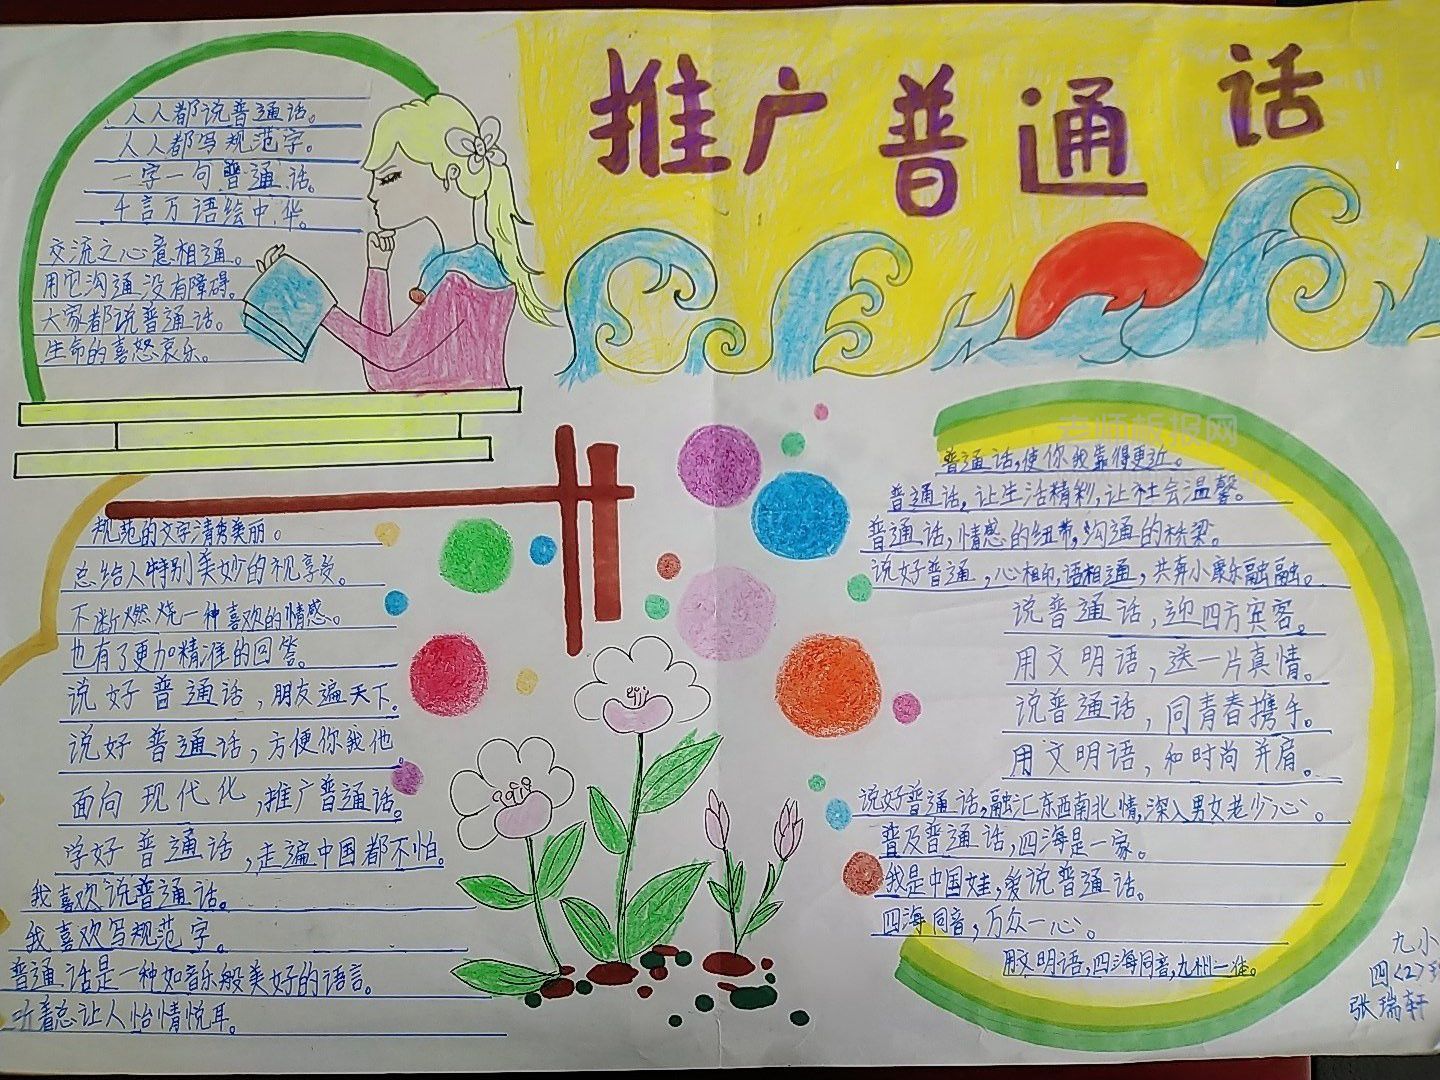 推广普通话
人人都说普通话。
人人都写规范字。
一字一句普通话。
千言万语绘中华。
交流之心意相通。
用它沟通没有障碍。
大家都说普通话。
生命的喜怒哀乐。
规范的文字清秀美丽。
总给人特别美妙的视享受。
不断燃烧一种喜欢的情感。
也有了更加精准的回答。
说好普通话，朋友遍天下。
说好普通话，方便你我他。
面向现代化，推广普通话。
学好普通话，走遍中国都不怕。
我喜欢说普通话。
我喜欢写规范字。
普通话是一种如音乐般美好的语言。
听着总让人怡情悦耳。
老师板报网
普通话，使你我靠得更近。
普通话，让生活精彩，让社会温馨。
普通话，情感的纽带，沟通的桥梁。
说好普通，心相印，语相通，共奔小康乐融融。
说普通话，迎四方宾客。
用文明语，送一片真情。
说普通话，同青春携手。
用文明语，和时尚并肩。
说好普通话，融汇东西南北情，深入男女老少心。
普及普通话，四海是一家。
我是中国娃，爱说普通话。
四海同音，万众一心。
用文明语，四海同音，九州一准。
九小
四(2)班
张瑞轩